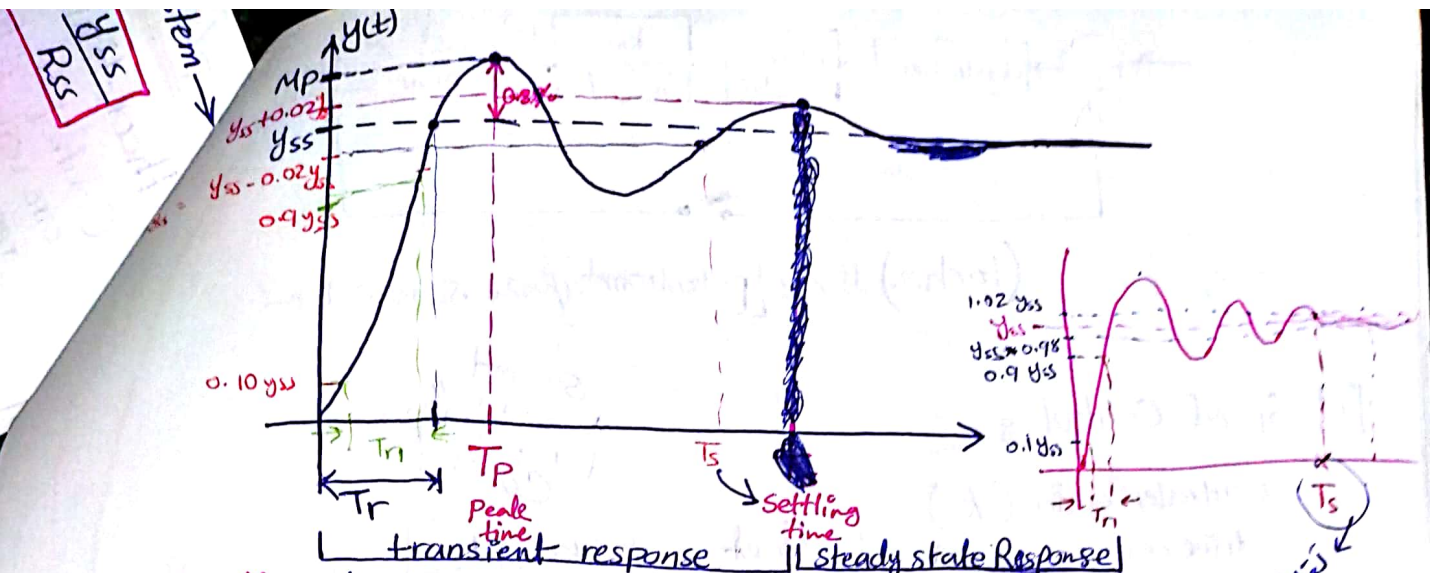 yss
Rss
tem →
y(t)
MP
yss + 0.02
yss
yss - 0.02 yss
0.9 yss
0.10 yss
Tr1
Tr
Tp
Peak
time
Ts
Settling
time
transient response
steady state Response
1.02 yss
yss
yss * 0.98
0.9 yss
0.1 yss
Tr1
Ts